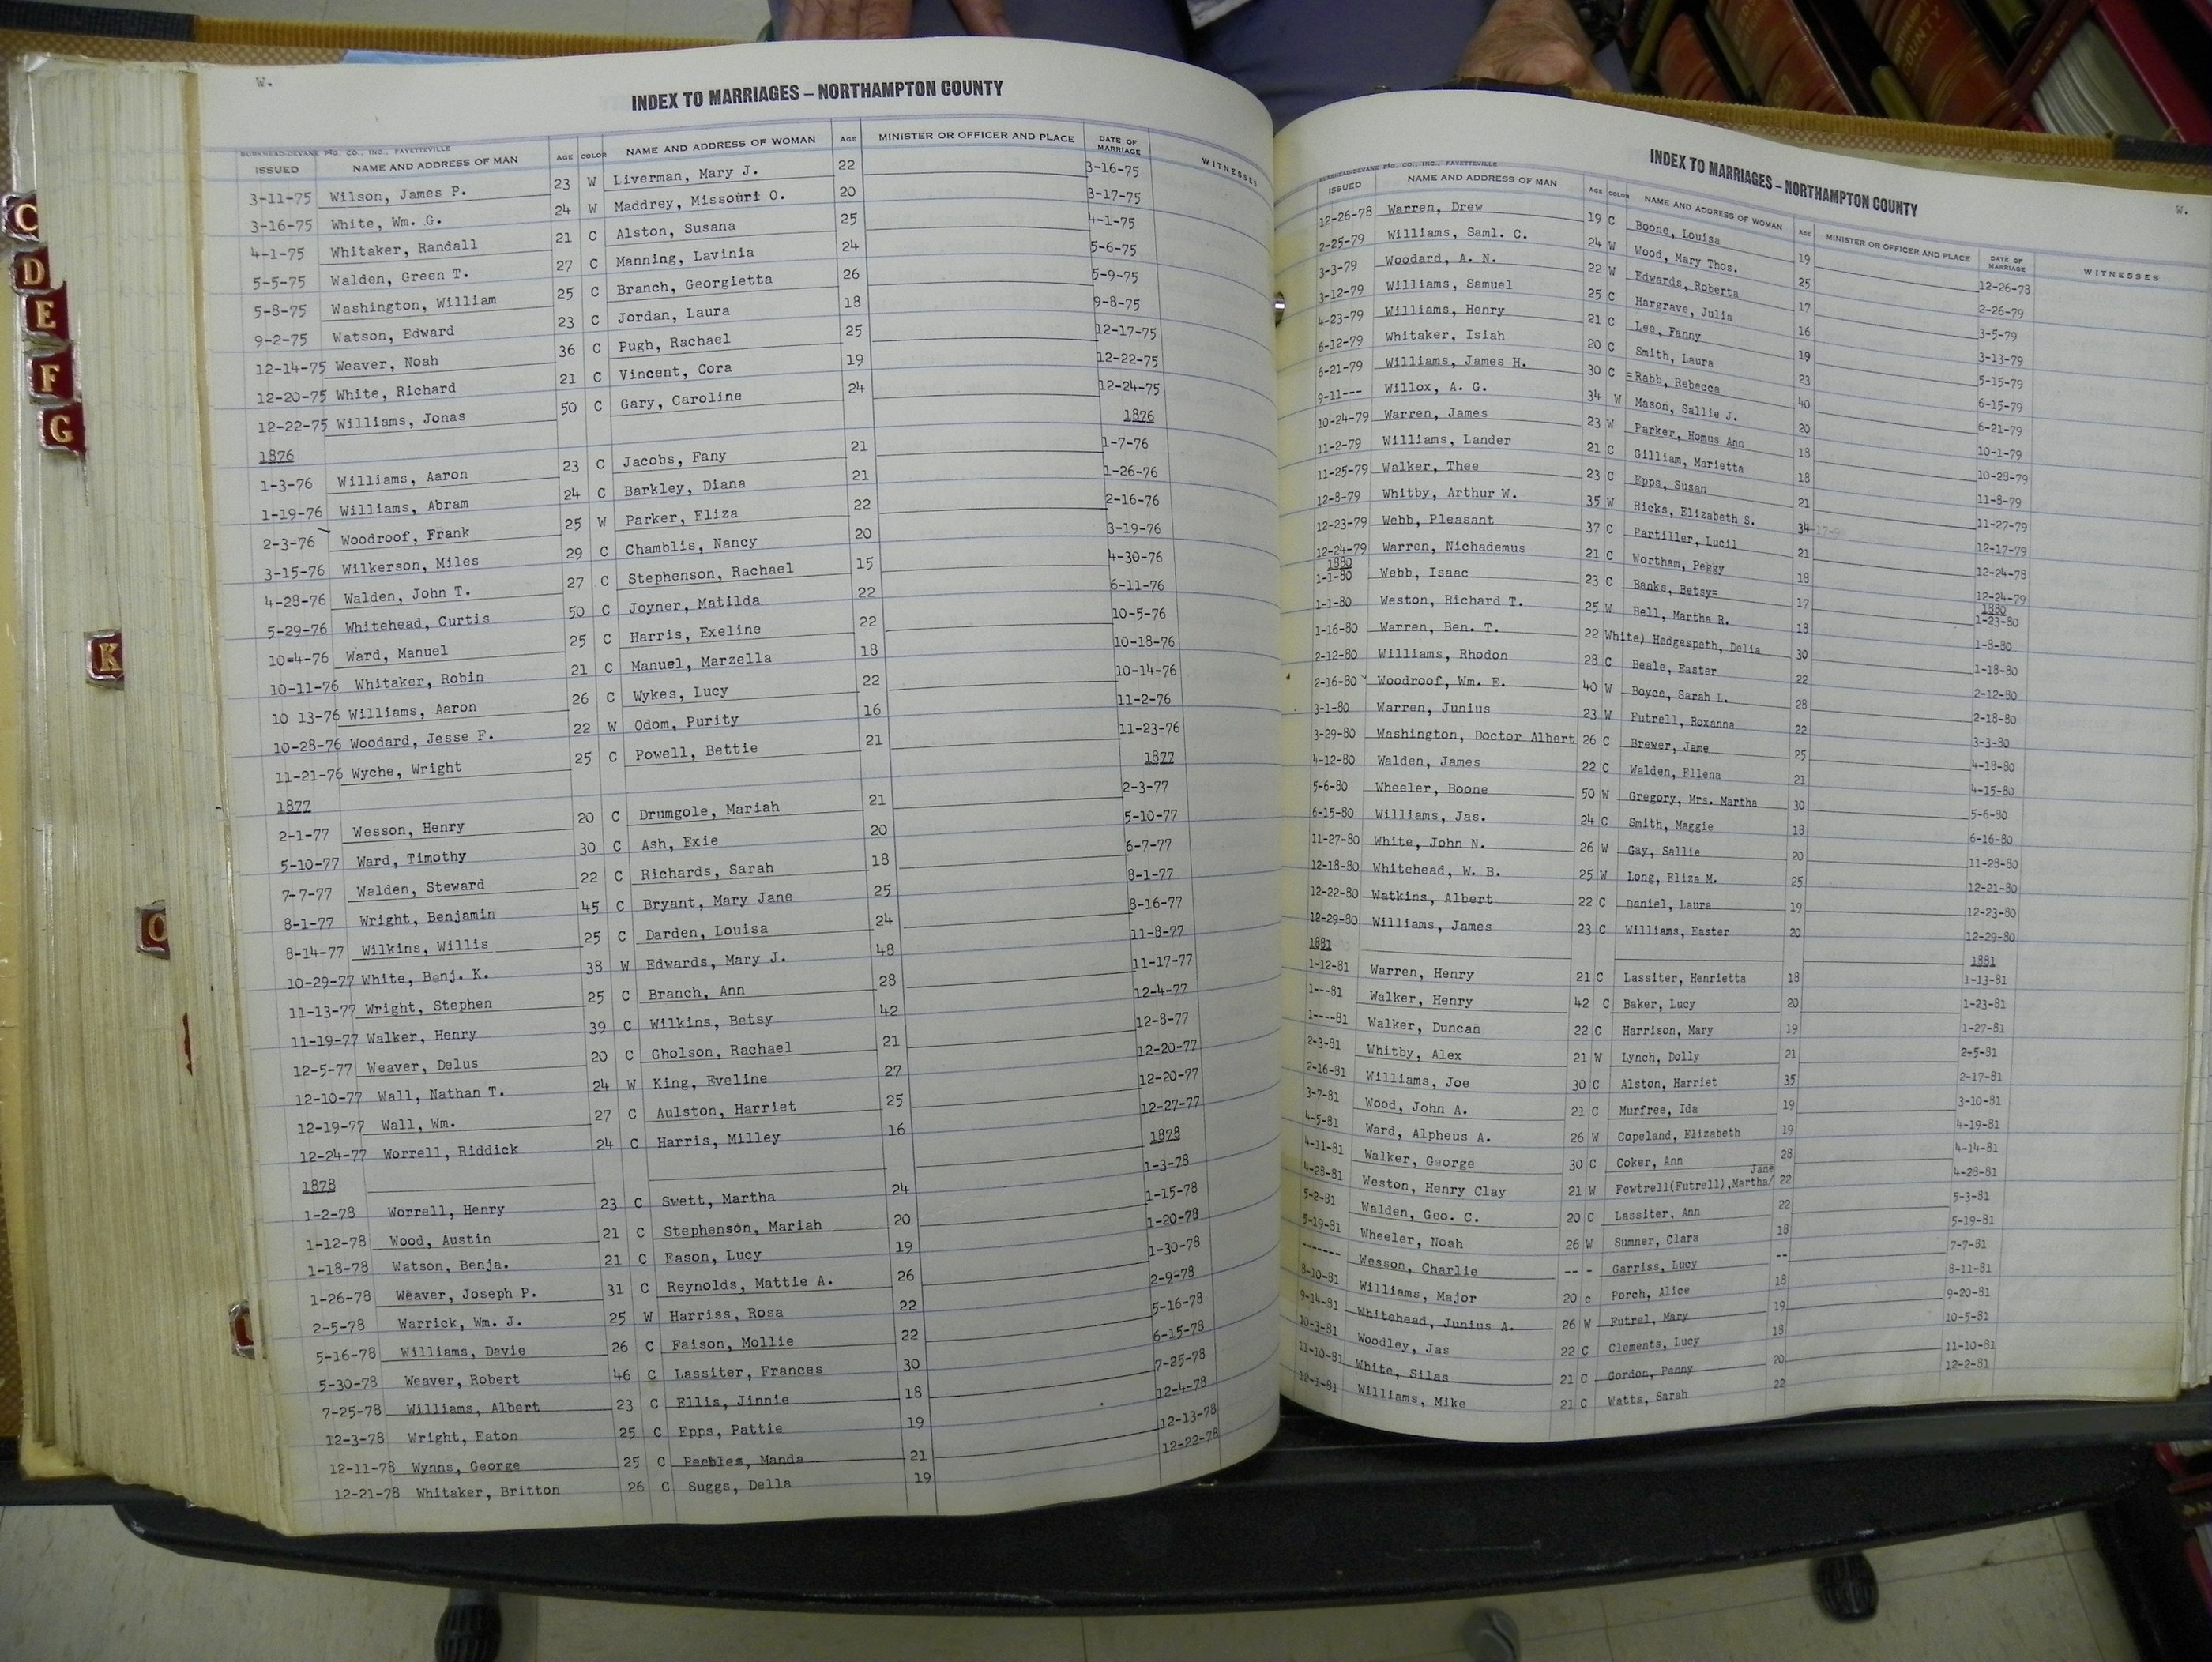 W.
INDEX TO MARRIAGES – NORTHAMPTON COUNTY
BURKHEAD-DEVANE P'TG. CO., INC., FAYETTEVILLE
ISSUED NAME AND ADDRESS OF MAN AGE COLOR NAME AND ADDRESS OF WOMAN AGE MINISTER OR OFFICER AND PLACE DATE OF MARRIAGE WITNESSES
3-11-75 Wilson, James P. 23 W Liverman, Mary J. 22 3-16-75
3-16-75 White, Wm. G. 24 W Maddrey, Missouri O. 20 3-17-75
4-1-75 Whitaker, Randall 21 C Alston, Susana 25 4-1-75
5-5-75 Walden, Green T. 27 C Manning, Lavinia 24 5-6-75
5-8-75 Washington, William 25 C Branch, Georgietta 26 5-9-75
9-2-75 Watson, Edward 23 C Jordan, Laura 18 9-8-75
12-14-75 Weaver, Noah 36 C Pugh, Rachael 25 12-17-75
12-20-75 White, Richard 21 C Vincent, Cora 19 12-22-75
12-22-75 Williams, Jonas 50 C Gary, Caroline 24 12-24-75
1876 1876
1-3-76 Williams, Aaron 23 C Jacobs, Fany 21 1-7-76
1-19-76 Williams, Abram 24 C Barkley, Diana 21 1-26-76
2-3-76 Woodroof, Frank 25 W Parker, Eliza 22 2-16-76
3-15-76 Wilkerson, Miles 29 C Chamblis, Nancy 20 3-19-76
4-28-76 Walden, John T. 27 C Stephenson, Rachael 15 4-30-76
5-29-76 Whitehead, Curtis 50 C Joyner, Matilda 22 6-11-76
10=4-76 Ward, Manuel 25 C Harris, Exeline 22 10-5-76
10-11-76 Whitaker, Robin 21 C Manuel, Marzella 18 10-18-76
10 13-76 Williams, Aaron 26 C Wykes, Lucy 22 10-14-76
10-28-76 Woodard, Jesse F. 22 W Odom, Purity 16 11-2-76
11-21-76 Wyche, Wright 25 C Powell, Bettie 21 11-23-76
1877 1877
2-1-77 Wesson, Henry 20 C Drumgole, Mariah 21 2-3-77
5-10-77 Ward, Timothy 30 C Ash, Exie 20 5-10-77
7-7-77 Walden, Steward 22 C Richards, Sarah 18 6-7-77
8-1-77 Wright, Benjamin 45 C Bryant, Mary Jane 25 8-1-77
8-14-77 Wilkins, Willis 25 C Darden, Louisa 24 8-16-77
10-29-77 White, Benj. K. 38 W Edwards, Mary J. 48 11-8-77
11-13-77 Wright, Stephen 25 C Branch, Ann 28 11-17-77
11-19-77 Walker, Henry 39 C Wilkins, Betsy 42 12-4-77
12-5-77 Weaver, Delus 20 C Gholson, Rachael 21 12-8-77
12-10-77 Wall, Nathan T. 24 W King, Eveline 27 12-20-77
12-19-77 Wall, Wm. 27 C Aulston, Harriet 25 12-20-77
12-24-77 Worrell, Riddick 24 C Harris, Milley 16 12-27-77
1878 1878
1-2-78 Worrell, Henry 23 C Swett, Martha 24 1-3-78
1-12-78 Wood, Austin 21 C Stephenson, Mariah 20 1-15-78
1-18-78 Watson, Benja. 21 C Eason, Lucy 19 1-20-78
1-26-78 Weaver, Joseph P. 31 C Reynolds, Mattie A. 26 1-30-78
2-5-78 Warrick, Wm. J. 25 W Harriss, Rosa 22 2-9-78
5-16-78 Williams, Davie 26 C Faison, Mollie 22 5-16-78
5-30-78 Weaver, Robert 46 C Lassiter, Frances 30 6-15-78
7-25-78 Williams, Albert 23 C Ellis, Jinnie 18 7-25-78
12-3-78 Wright, Eaton 25 C Epps, Pattie 19 12-4-78
12-11-78 Wynns, George 25 C Peebles, Manda 21 12-13-78
12-21-78 Whitaker, Britton 26 C Suggs, Della 19 12-22-78
W.
INDEX TO MARRIAGES – NORTHAMPTON COUNTY
BURKHEAD-DEVANE P'TG. CO., INC., FAYETTEVILLE
ISSUED NAME AND ADDRESS OF MAN AGE COLOR NAME AND ADDRESS OF WOMAN AGE MINISTER OR OFFICER AND PLACE DATE OF MARRIAGE WITNESSES
12-26-78 Warren, Drew 19 C Boone, Louisa 19 12-26-78
2-25-79 Williams, Saml. C. 24 W Wood, Mary Thos. 25 2-26-79
3-3-79 Woodard, A. N. 22 W Edwards, Roberta 17 3-5-79
3-12-79 Williams, Samuel 25 C Hargrave, Julia 16 3-13-79
4-23-79 Williams, Henry 21 C Lee, Fanny 19 5-15-79
6-12-79 Whitaker, Isiah 20 C Smith, Laura 23 6-15-79
6-21-79 Williams, James H. 30 C =Rabb, Rebecca 40 6-21-79
9-11--- Willox, A. G. 34 W Mason, Sallie J. 20 10-1-79
10-24-79 Warren, James 23 W Parker, Homus Ann 18 10-28-79
11-2-79 Williams, Lander 21 C Gilliam, Marietta 18 11-8-79
11-25-79 Walker, Thee 23 C Epps, Susan 21 11-27-79
12-8-79 Whitby, Arthur W. 35 W Ricks, Elizabeth S. 34 12-17-79
12-23-79 Webb, Pleasant 37 C Partiller, Lucil 21 12-24-78
12-24-79 Warren, Nichademus 21 C Wortham, Peggy 18 12-24-79
1880 1880
1-1-80 Webb, Isaac 23 C Banks, Betsy= 17 1-23-80
1-1-80 Weston, Richard T. 25 W Bell, Martha R. 18 1-8-80
1-16-80 Warren, Ben. T. 22 White) Hedgespeth, Delia 30 1-18-80
2-12-80 Williams, Rhodon 28 C Beale, Easter 22 2-12-80
2-16-80 Woodroof, Wm. E. 40 W Boyce, Sarah L. 28 2-18-80
3-1-80 Warren, Junius 23 W Futrell, Roxanna 22 3-3-80
3-29-80 Washington, Doctor Albert 26 C Brewer, Jame 25 4-18-80
4-12-80 Walden, James 22 C Walden, Ellena 21 4-15-80
5-6-80 Wheeler, Boone 50 W Gregory, Mrs. Martha 30 5-6-80
6-15-80 Williams, Jas. 24 C Smith, Maggie 18 6-16-80
11-27-80 White, John N. 26 W Gay, Sallie 20 11-28-80
12-18-80 Whitehead, W. B. 25 W Long, Eliza M. 25 12-21-80
12-22-80 Watkins, Albert 22 C Daniel, Laura 19 12-23-80
12-29-80 Williams, James 23 C Williams, Easter 20 12-29-80
1881 1881
1-12-81 Warren, Henry 21 C Lassiter, Henrietta 18 1-13-81
1---81 Walker, Henry 42 C Baker, Lucy 20 1-23-81
1----81 Walker, Duncan 22 C Harrison, Mary 19 1-27-81
2-3-81 Whitby, Alex 21 W Lynch, Dolly 21 2-5-81
2-16-81 Williams, Joe 30 C Alston, Harriet 35 2-17-81
3-7-81 Wood, John A. 21 C Murfree, Ida 19 3-10-81
4-5-81 Ward, Alpheus A. 26 W Copeland, Elizabeth 19 4-19-81
4-11-81 Walker, George 30 C Coker, Ann 28 4-14-81
4-28-81 Weston, Henry Clay 21 W Fewtrell(Futrell),Martha/ Jane 22 4-28-81
5-2-81 Walden, Geo. C. 20 C Lassiter, Ann 22 5-3-81
5-19-81 Wheeler, Noah 26 W Sumner, Clara 18 5-19-81
------- Wesson, Charlie -- - Garriss, Lucy -- 7-7-81
8-10-81 Williams, Major 20 c Porch, Alice 18 8-11-81
9-14-81 Whitehead, Junius A. 26 W Futrel, Mary 19 9-20-81
10-3-81 Woodley, Jas 22 C Clements, Lucy 18 10-5-81
11-10-81 White, Silas 21 C Gordon, Penny 20 11-10-81
12-1-81 Williams, Mike 21 C Watts, Sarah 22 12-2-81
C
D
E
F
G
K
COUNTY